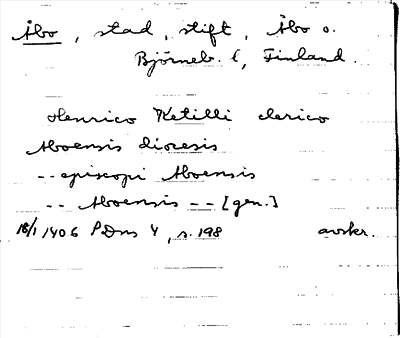 Åbo, stad, stift, Åbo o.
Björneb. l, Finland.
Henrico Ketilli clerico
Aboensis diocesis
-- episcopi Aboensis
-- Aboensis -- [gen.]
18/1 1406 PDns 4, s. 198 avskr.